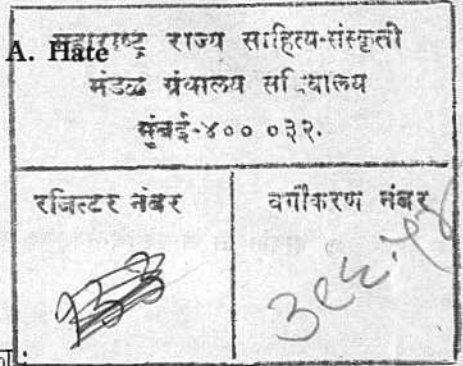 A. Hate
महाराष्ट्र राज्य साहित्य-संस्कृती
मंडळ ग्रंथालय सचिवालय
मुंबई-४०० ०३२.
रजिस्टर नंबर वर्गीकरण नंबर